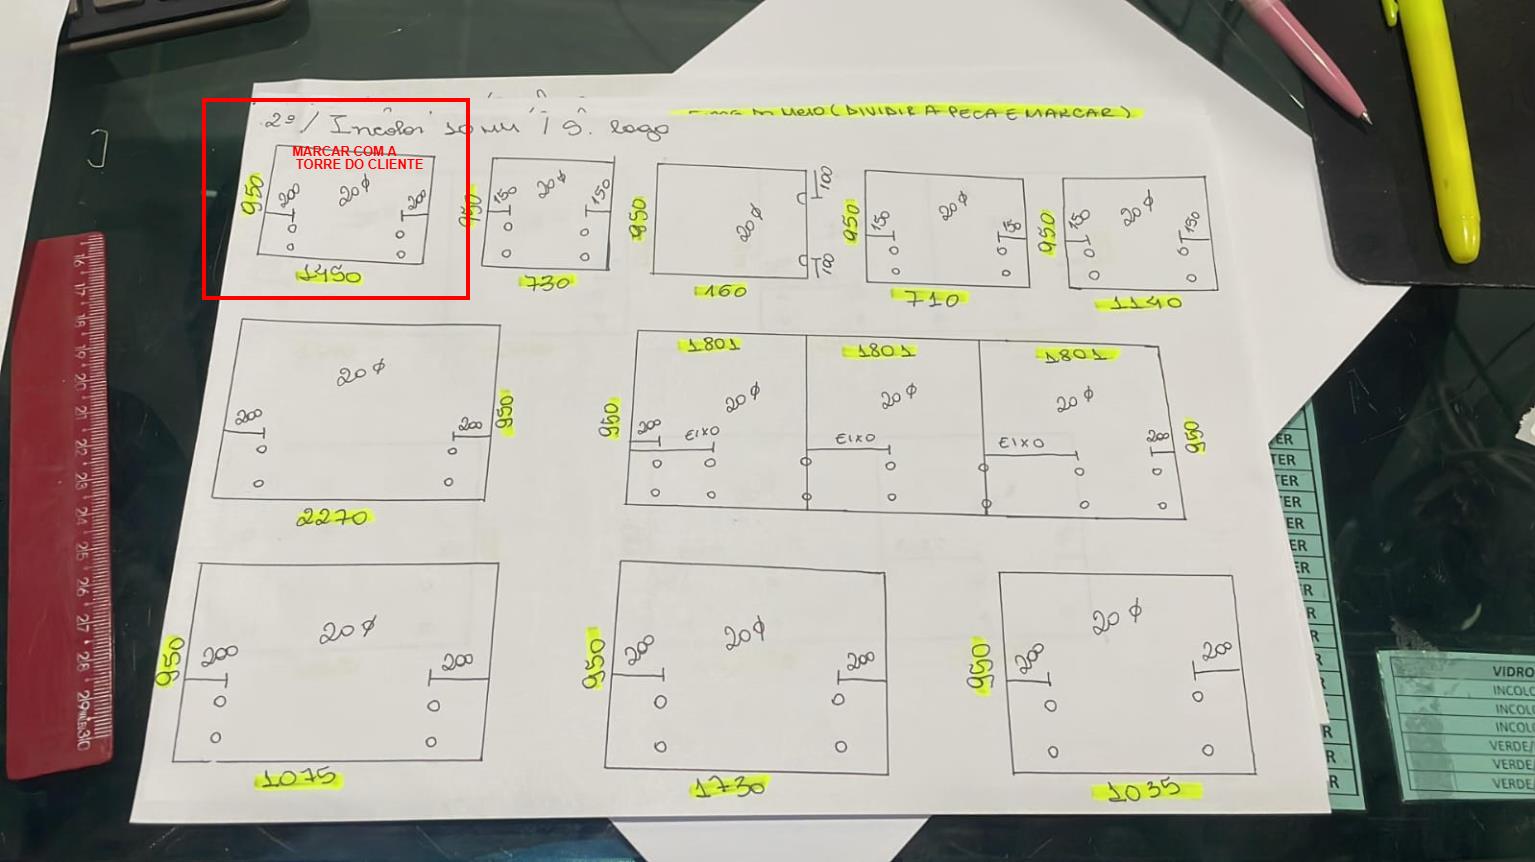 MEIO (DIVIDIR A PEÇA E MARCAR)
2º/ Incolor 10 MM / S. logo
MARCAR COM A
TORRE DO CLIENTE
950 200 20Ø 200
1450
950 150 20Ø 150
730
950 20Ø 100
100
160
950 150 20Ø 150
710
950 150 20Ø 150
1140
20Ø
200 200 950
2270
1801 1801 1801
20Ø 20Ø 20Ø
950 200 EIXO EIXO EIXO 200 950
20Ø
950 200 200
1075
20Ø
950 200 200
1730
20Ø
950 200 200
1035
16 17 18 19 20 21 22 23 24 25 26 27 28 29 30
TER
TER
TER
TER
ER
ER
ER
ER
R
R
VIDRO
INCOLO
INCOLO
INCOLO
VERDE/
VERDE/
VERDE/